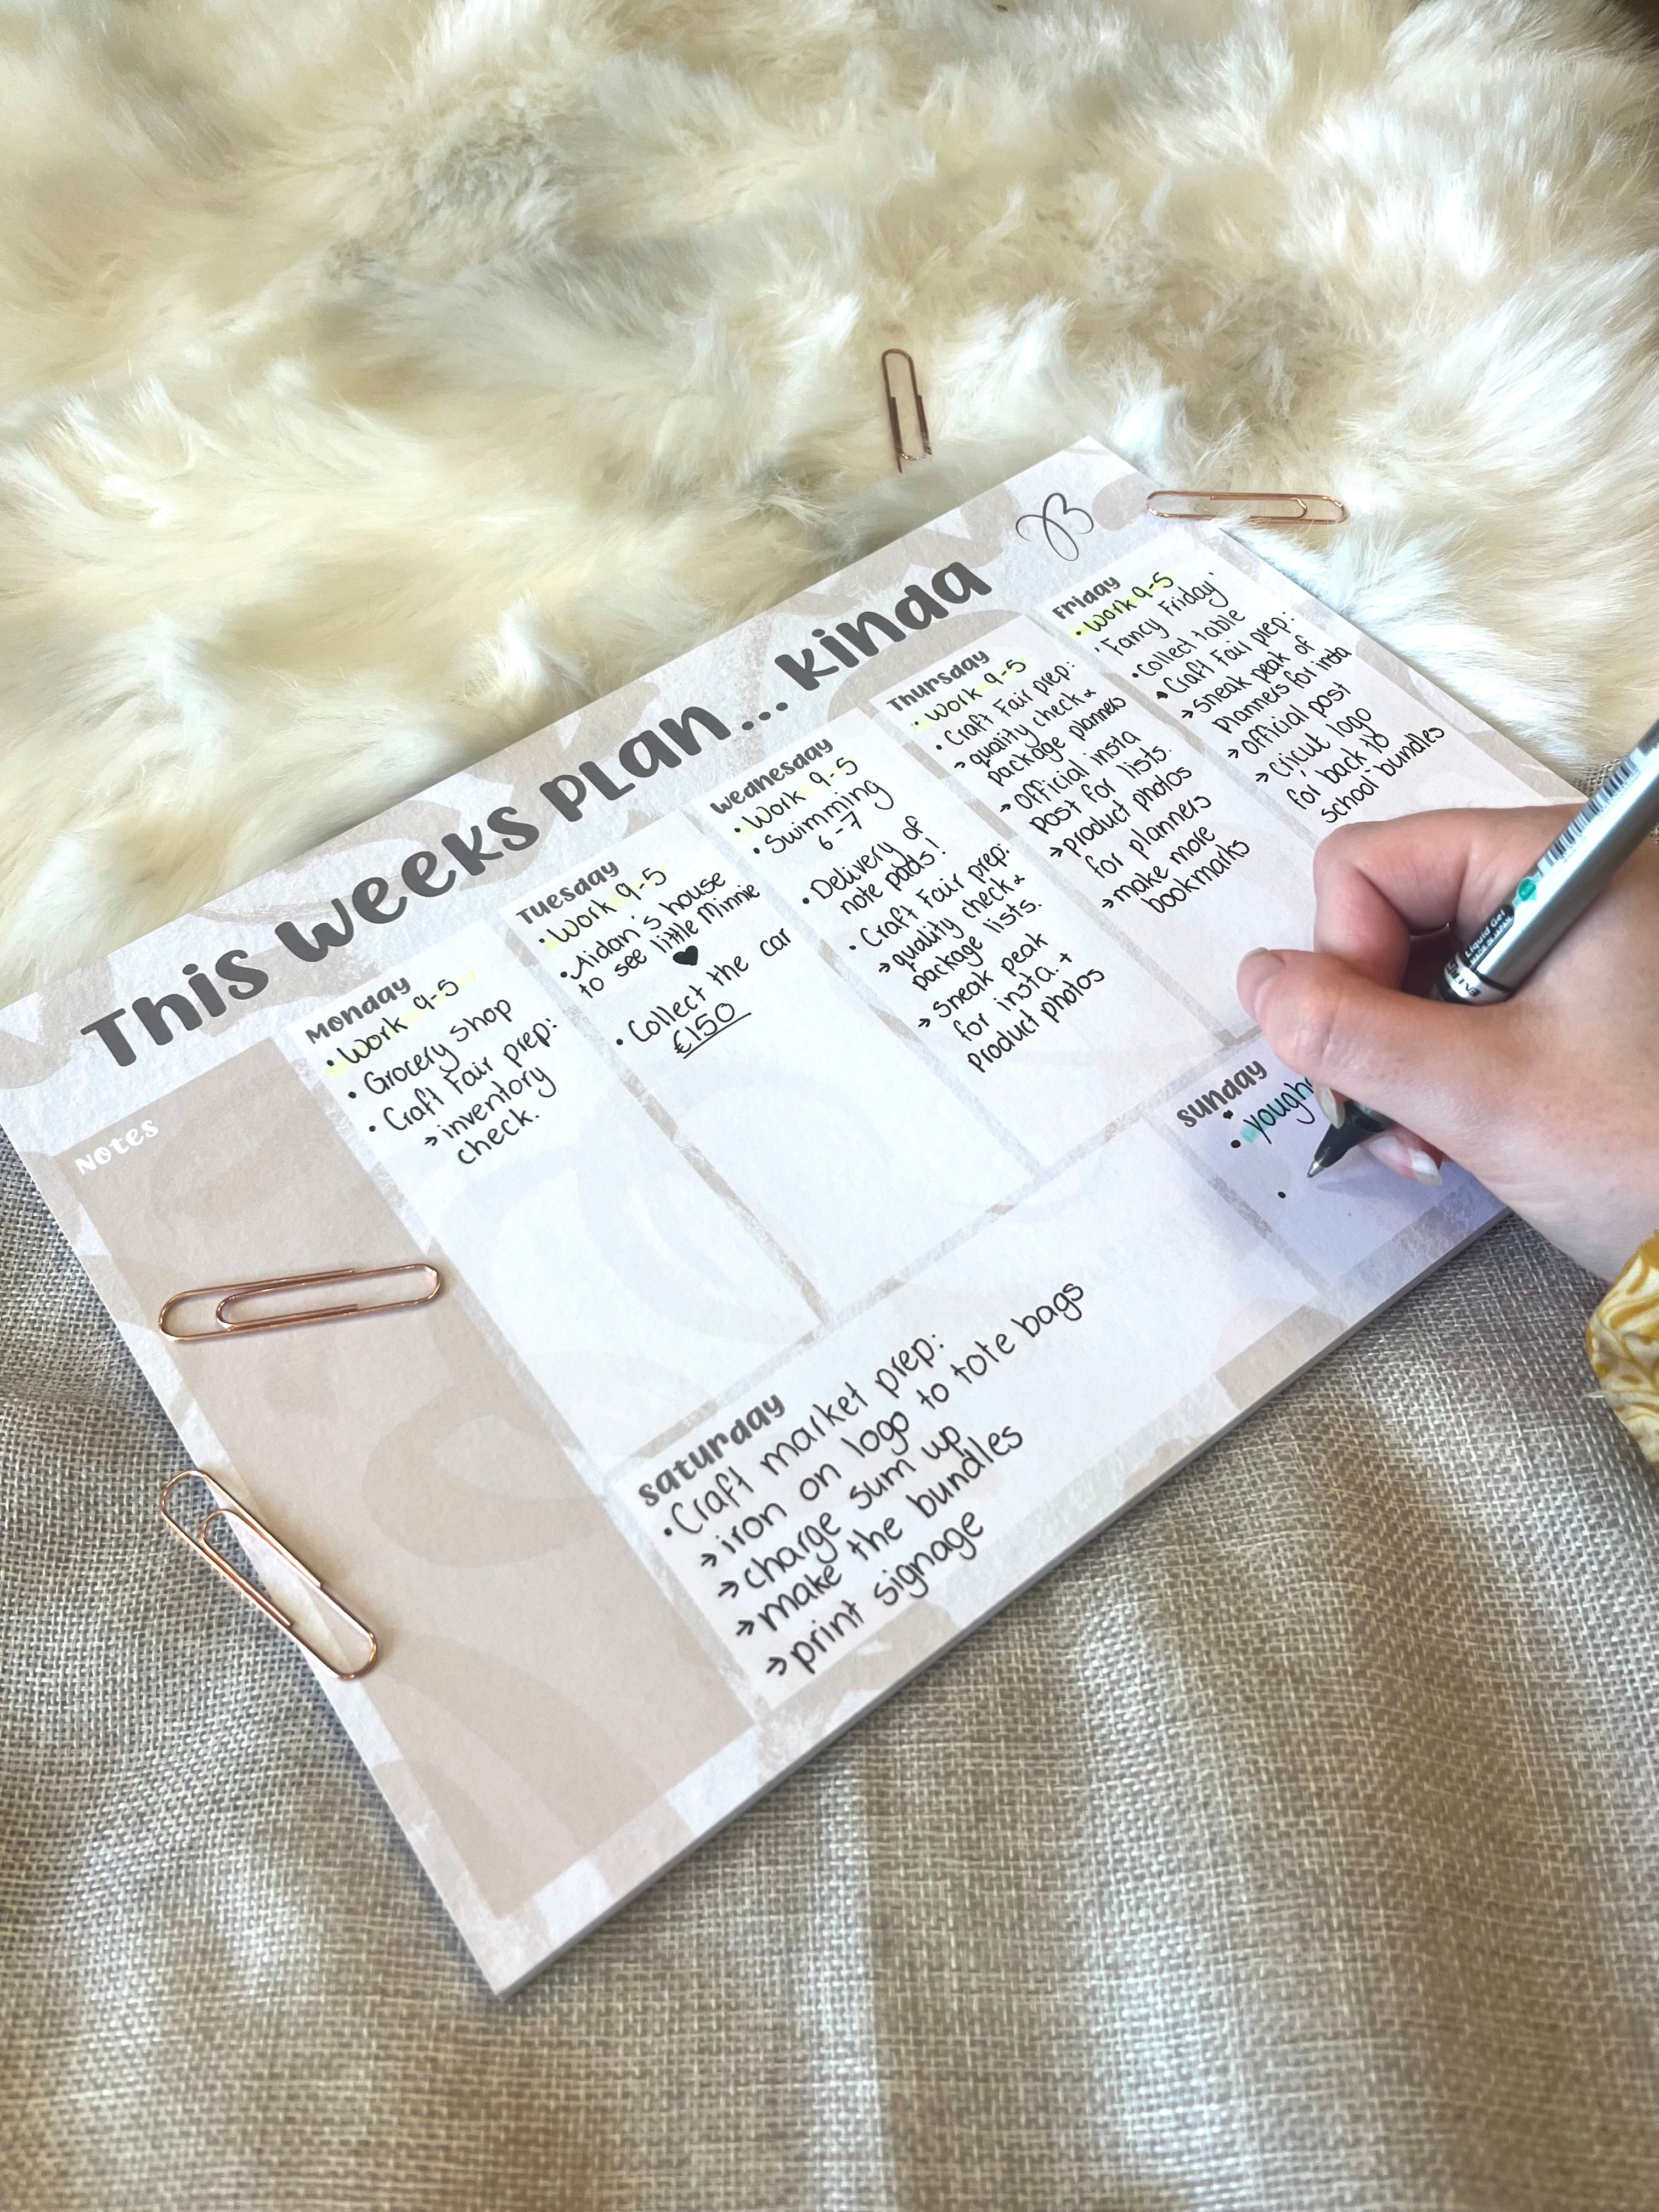 This weeks plan... kinda
B
Notes
Monday
• Work 9-5
• Grocery shop
• Craft Fair prep:
→ inventory
check.
Tuesday
• Work 9-5
• Aidan's house
to see little Minnie
♥
• Collect the car
€150
Wednesday
• Work 9-5
• Swimming
6-7
• Delivery of
note pads!
• Craft Fair prep:
→ quality check &
package lists.
→ Sneak peak
for insta. +
product photos
Thursday
• Work 9-5
• Craft Fair prep:
→ quality check &
package planners
→ Official insta
post for lists.
→ product photos
for planners
→ make more
bookmarks
Friday
• Work 9-5
'Fancy Friday'
• Collect table
• Craft Fair prep:
→ Sneak peak of
planners for insta
→ Official post
→ Cricut logo
for back to
school bundles
Saturday
• Craft market prep:
→ iron on logo to tote bags
→ charge sum up
→ make the bundles
→ print signage
Sunday
Liquid Gel
MADE IN JAPAN